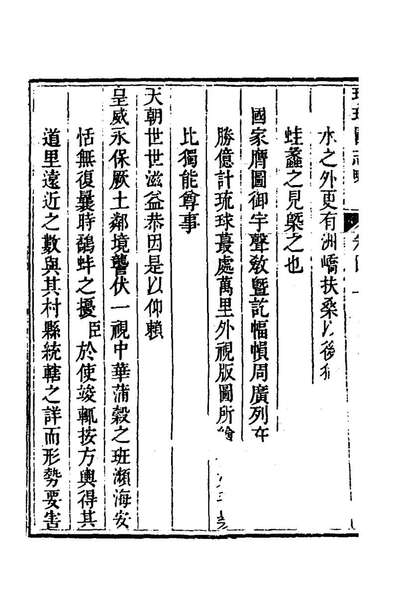 琉球國志略
水之外更有洲嶠扶桑以後
蛙蠡之見槩之也
國家膺圖御宇聲敎曁訖幅幀周廣列在
勝億計琉球蕞處萬里外視版圖所
比獨能尊事
天朝世世滋益恭因是以仰賴
皇威永保厥土鄰境讋伏一視中華蒲穀之班瀕海安
恬無復曩時鷸蚌之擾臣於使竣輒按方輿得其
道里遠近之數與其村縣統轄之詳而形勢要害